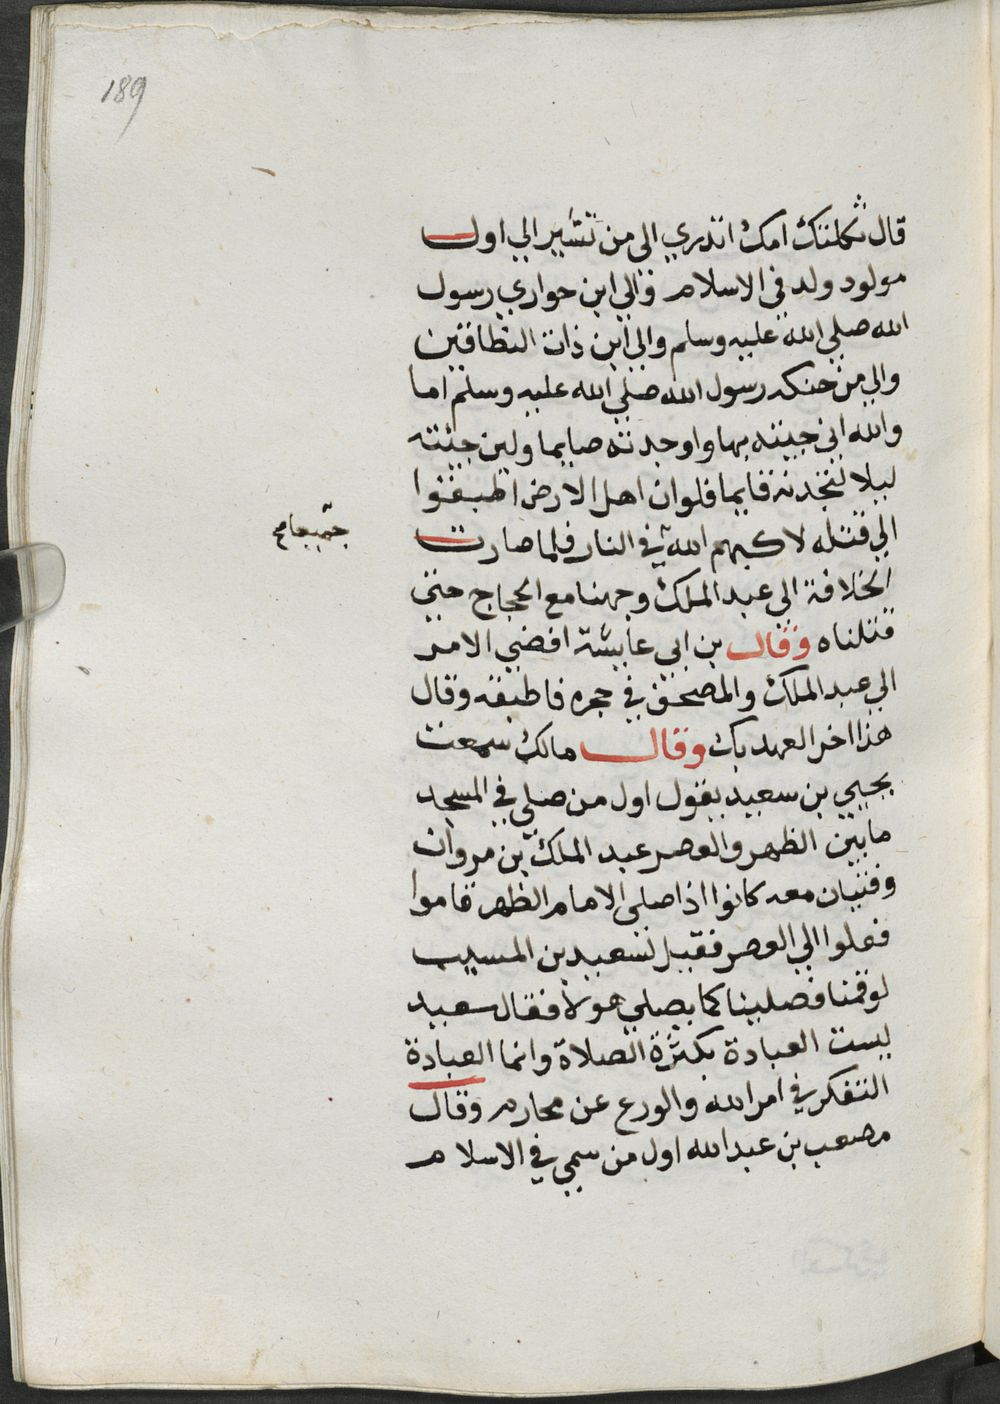 189
قال ثكلتك امك اتدري الى من تشير الي اول
مولود ولد في الاسلام والي ابن حواري رسول
الله صلي الله عليه وسلم والي ابن ذات النطاقين
والي من حنكه رسول الله صلي الله عليه وسلم اما
والله اني جيته نهارا وجدته صايما ولين جئته
ليلا لتجدنه قايما فلو ان اهل الارض اطبقوا
الي قتله لاكبهم الله في النار فلما صارت
جميعا مع
الخلافة الي عبد الملك وجهنا مع الحجاج حتي
قتلناه وقال بن ابي عايشة افضي الامر
الي عبد الملك والمصحف في حجره فاطبقه وقال
هذا اخر العهد بك وقال مالك سمعت
يحيي بن سعيد يقول اول من صلي في المسجد
ما بين الظهر والعصر عبد الملك بن مروان
وفتيان معه كانوا اذا صلي الامام الظهر قاموا
فصلوا الي العصر فقيل لسعيد بن المسيب
لو قمنا فصلينا كما يصلي هولا فقال سعيد
ليست العبادة بكثرة الصلاة وانما العبادة
التفكر في امر الله والورع عن محارم وقال
مصعب بن عبد الله اول من سمي في الاسلام